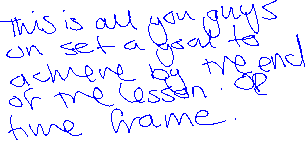 This is all you guys
un set a goal to
achieve by the end
of the lesson. OR
time frame.